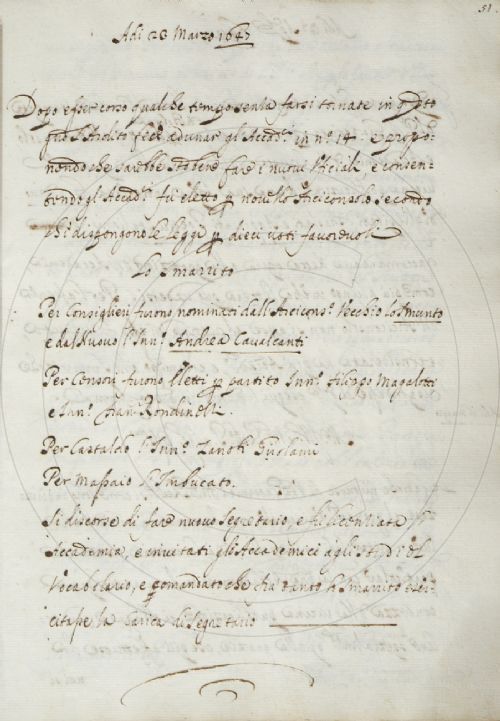 51.
Adi 28 Marzo 1647
Dopo esser corso qualche tempo senza farsi tornate in qto
fece adunar gl'Accadi. in n.o 14. e propo-
nendo che sarebbe stato bene fare i nuovi Ufficiali, e consen-
tendo gl'Accadi. fu eletto p novello Arciconsolo secondo
che dispongono le leggi p dieci voti favorevoli
Lo Smarrito
Per Consiglieri furono nominati dall'Arcicons.o Vecchio lo Smunto
e dal Nuovo l'Inn.o Andrea Cavalcanti
Per Censori furono eletti p partito Inn.o Filippo Magalotti
e Inn.o Rondinelli.
Per Castaldo l'Inn.o Zanobi Girolami
Per Massaio l'Imbucato.
Si discorse di fare nuovo Segretario, e fu licenziata
Accademia, e invitati gl'Accademici agli del
Vocabolario, e comandato che tra tanto lo Smarrito eser-
citasse la carica di Segretario